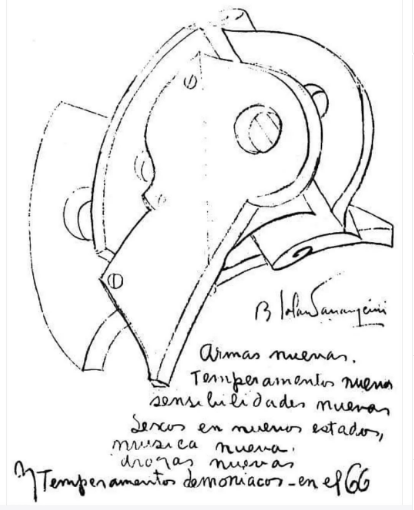 B Solari Parravicini
Armas nuevas.
Temperamentos nuevos
sensibilidades nuevas
Sexos en nuevos estados,
musica nueva.
drogas nuevas
Temperamentos demoniacos - en el 66